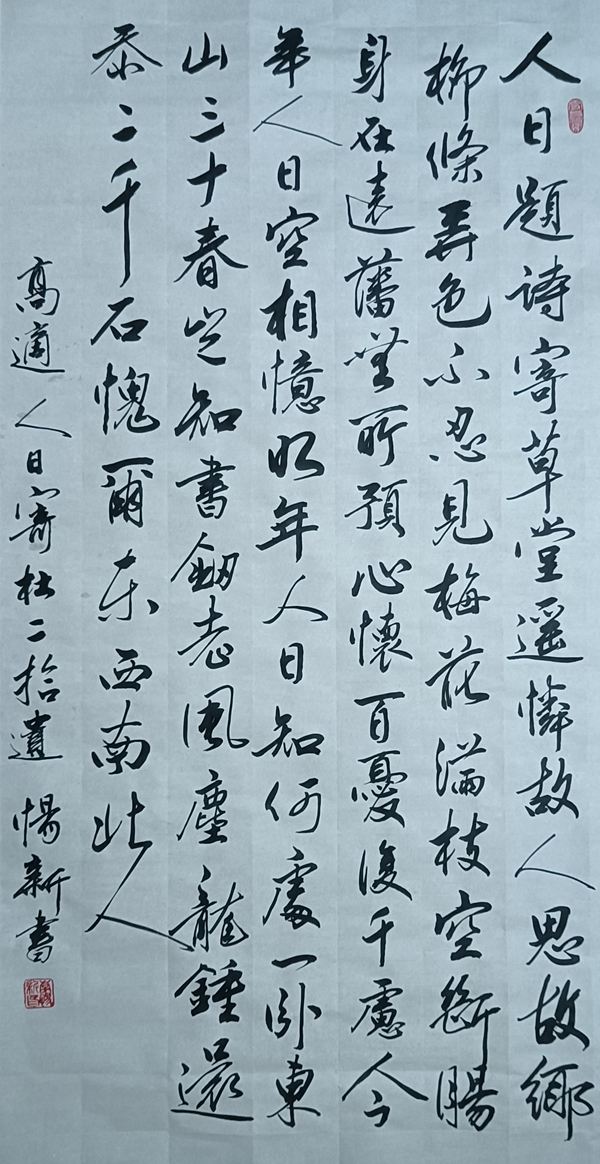 人日題詩寄草堂遥憐故人思故鄉
柳條弄色不忍見梅花滿枝空斷腸
身在遠藩無所預心懷百憂復千慮今
年人日空相憶明年人日知何處一卧東
山三十春豈知書劒老風塵龍鍾還
忝二千石愧爾東西南北人
高適人日寄杜二拾遺 惕新書